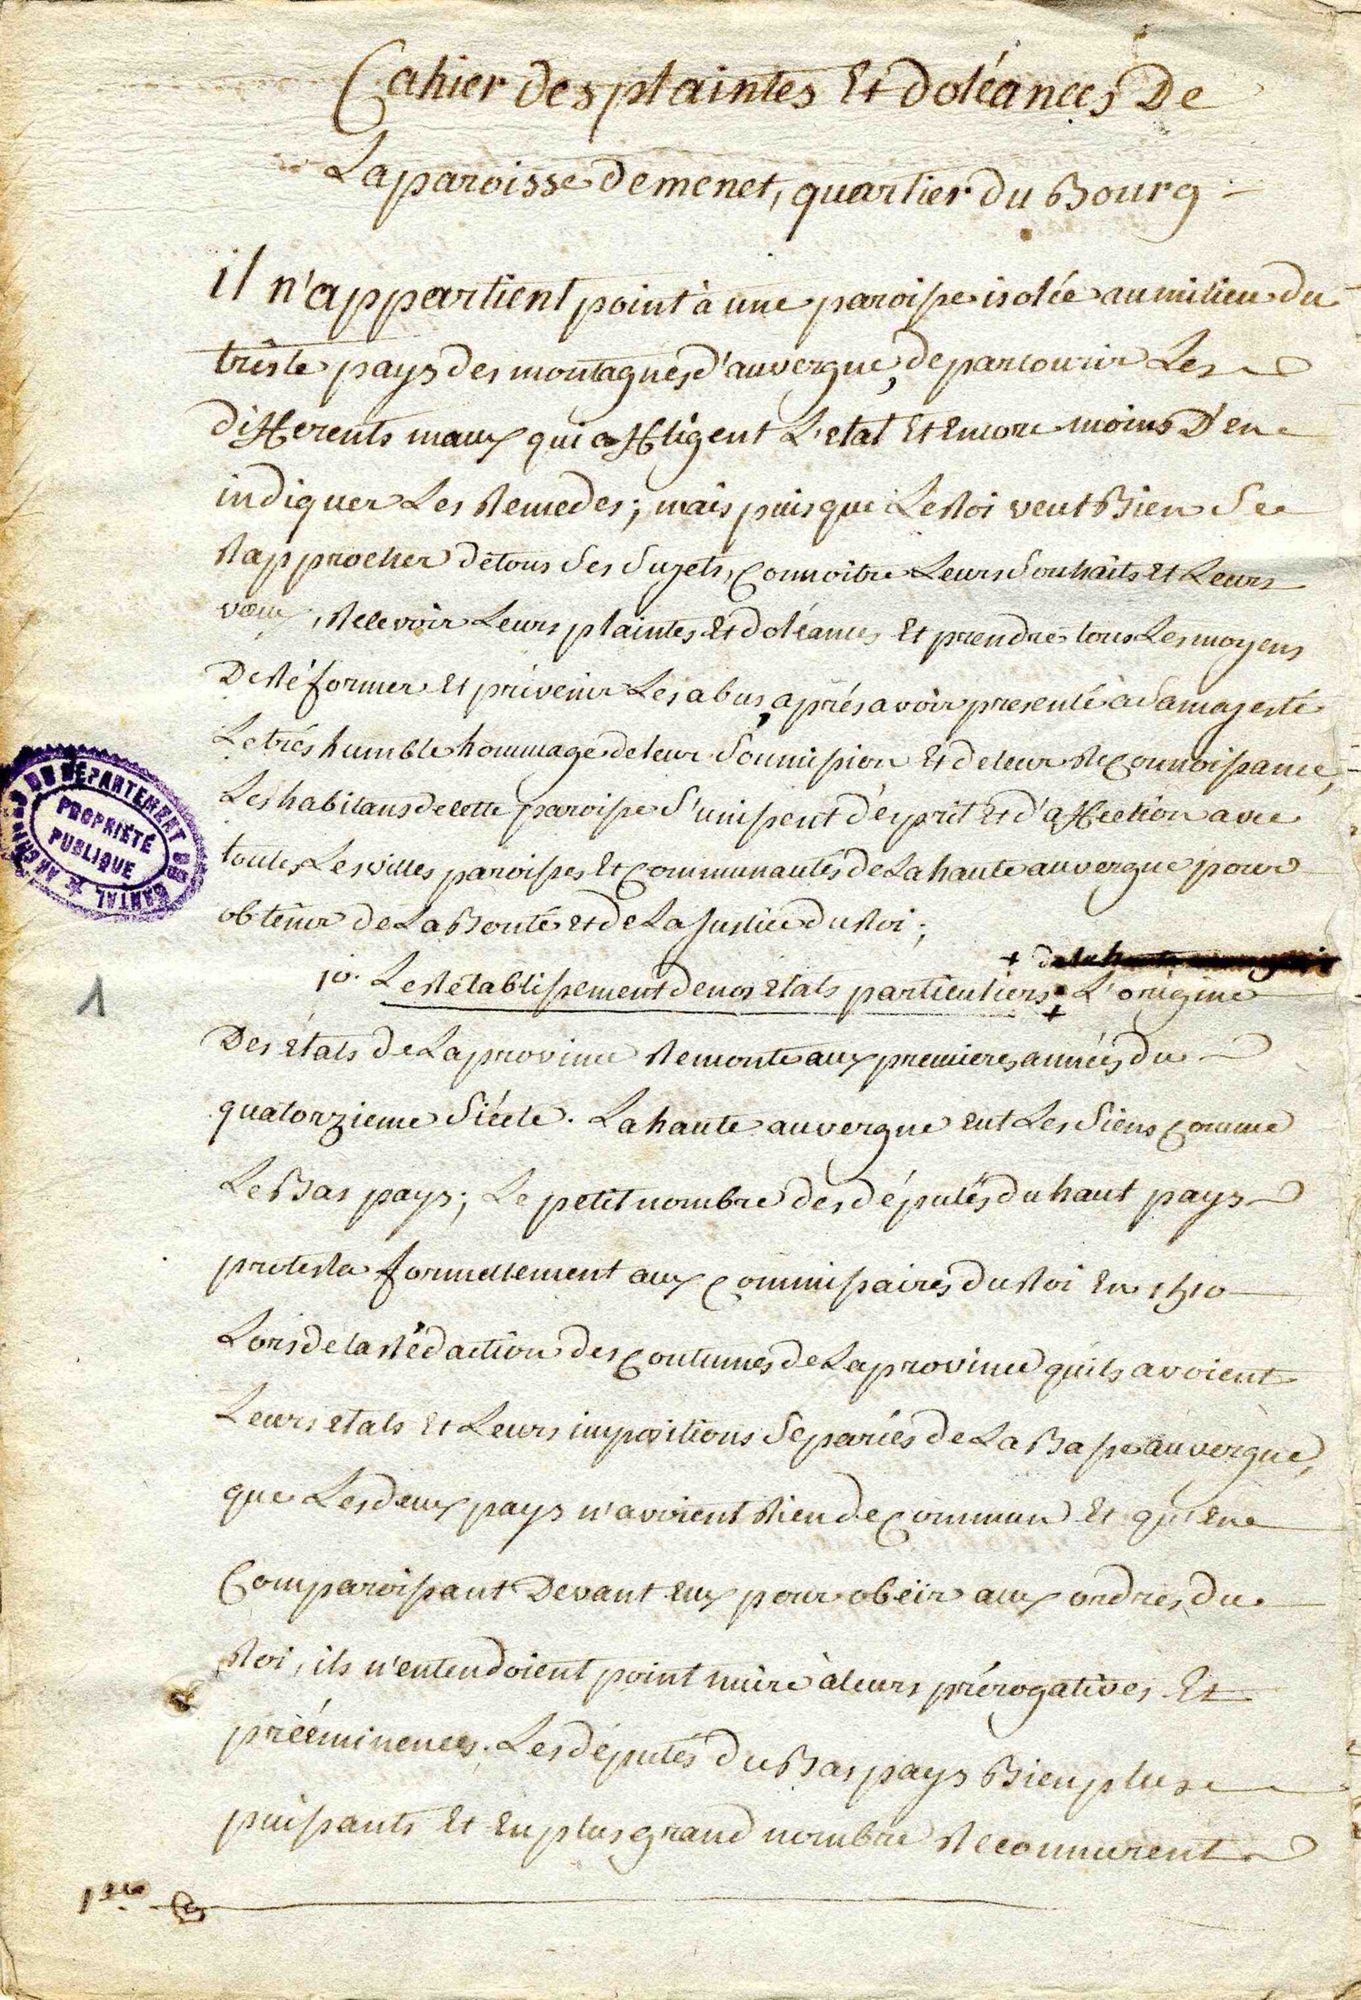 Cahier des plaintes Et doléances De
La paroisse de menet, quartier du Bourg
il n'appartient point à une paroisse isolée au milieu du
triste pays des montagnes d'auvergne, de parcourir Les
differents maux qui affligent L'etat Et Encore moins D'en
indiquer Les Remedes; mais puisque Le Roi veut Bien Se
Rapprocher de tous Ses Sujets, Connoitre Leurs Souhaits Et Leurs
vœux, Recevoir Leurs plaintes Et doléances Et prendre tous Les moyens
De Réformer Et prévenir Les abus, aprés avoir presenté à Sa majesté
Le trés humble hommage de leur Soumission Et de leur Reconnoissance,
Les habitans de cette paroisse S'unissent d'esprit Et d'affection avec
toutes Les villes paroisses Et Communautés de La haute auvergne pour
obtenir de La Bonté Et de La Justice du Roi;
+ de la haute auvergne
1o. Le Rétablissement de nos Etats particuliers + L'origine
Des états de La province Remonte aux premieres années du
quatorzieme Siécle. La haute auvergne Eut Les Siens Comme
Le Bas pays; Le petit nombre des députés du haut pays
protesta formellement aux Commissaires du Roi En 1510
Lors de la Rédaction des Coutumes de La province qu'ils avoient
Leurs Etats Et Leurs impositions Séparées de La Basse auvergne,
que Les deux pays n'avoient Rien de Commun Et qu'En
Comparoissant Devant Eux pour obéir aux ordres du
Roi, ils n'entendoient point nuire à leurs prérogatives Et
prééminences. Les députés du Bas pays Bien plus
puissants Et En plus grand nombre Reconnurent
1ere
ARCHIVES DU DÉPARTEMENT DU CANTAL
PROPRIÉTÉ
PUBLIQUE
1